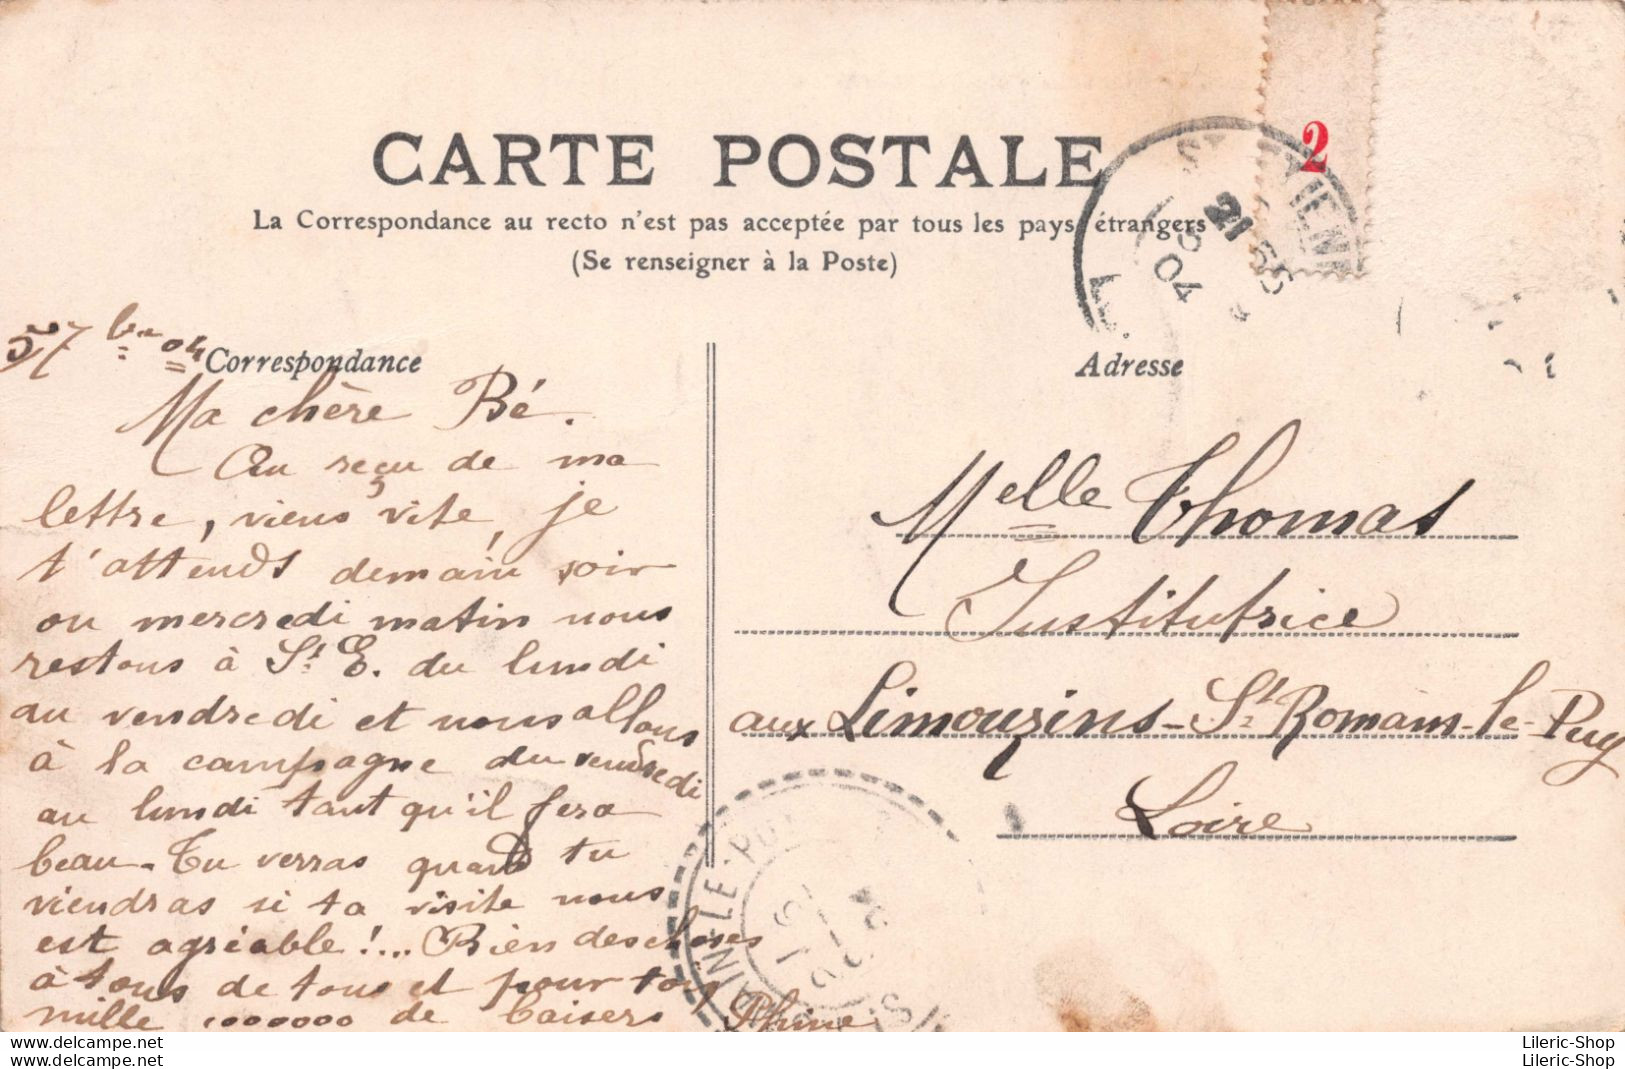 CARTE POSTALE
La Correspondance au recto n'est pas acceptée par tous les pays étrangers
(Se renseigner à la Poste)
2
ST ETIENN
21
S
04
5 7bre 04
Correspondance
Ma chère Bé.
Au reçu de ma
lettre, viens vite, je
t'attends demain soir
ou mercredi matin nous
restons à St. E. du lundi
au vendredi et nous allons
à la campagne du vendredi
au lundi tant qu'il fera
beau - Tu verras quand tu
viendras si ta visite nous
est agréable !... Bien des choses
à tous de tous et pour toi
mille 1000000 de baisers Phine
Adresse
Melle Thomas
Institutrice
aux Limouzins - St Romans-le-Puy
Loire
LE-PU
delcampe.net
delcampe.net
Lileric-Shop
Lileric-Shop